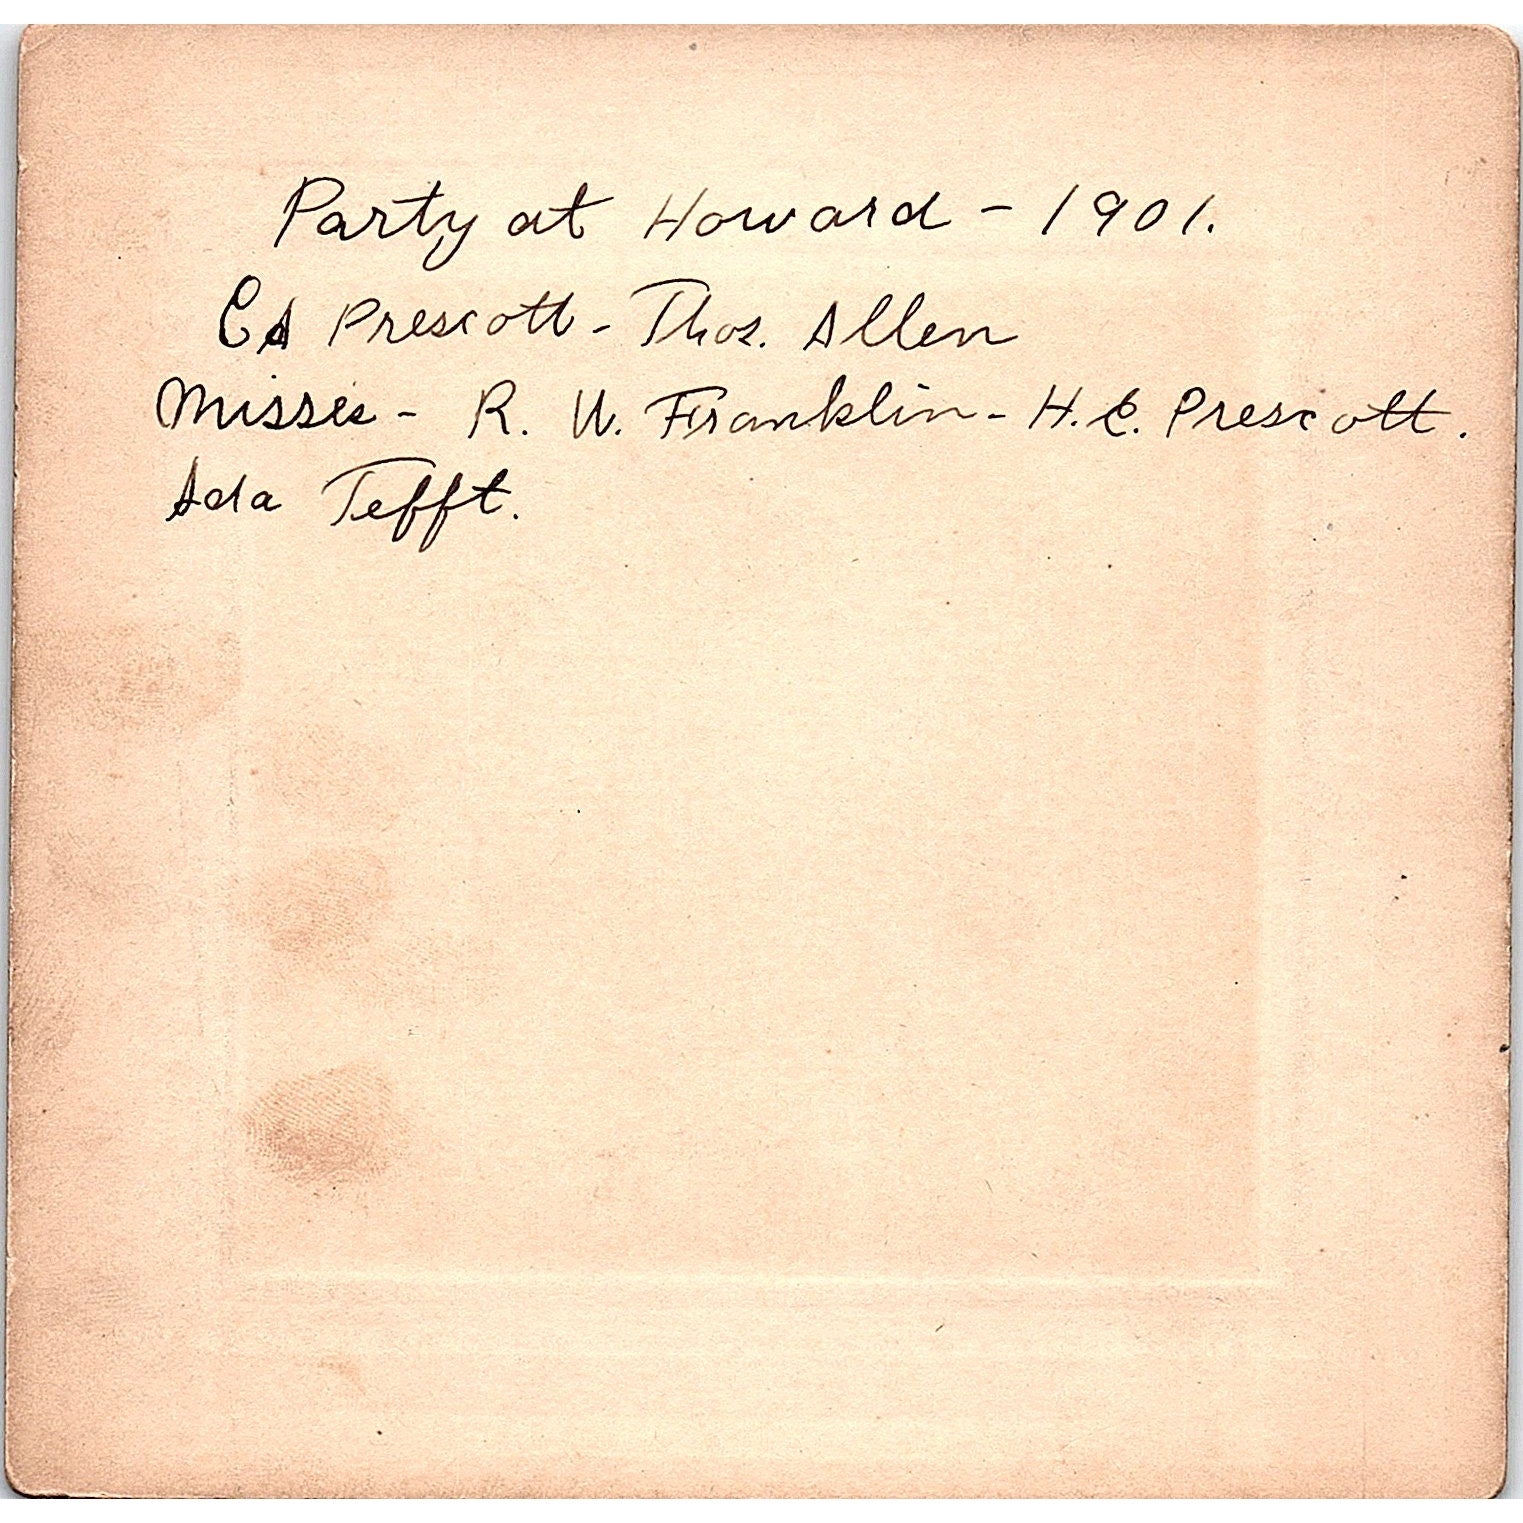 Party at Howard - 1901.
Ed Prescott - Thos. Allen
Misses - R. W. Franklin - H.C. Prescott.
Ada Tefft.